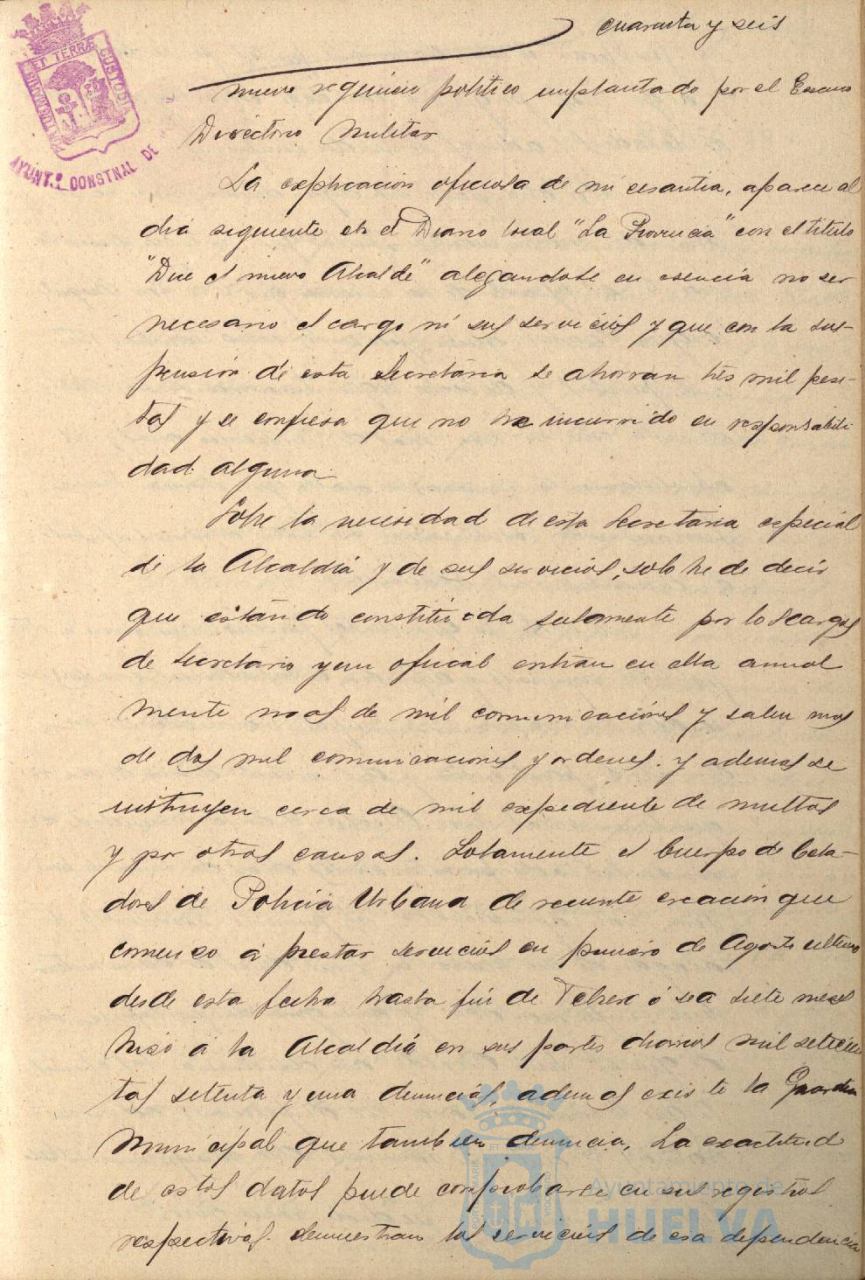 cuarenta y seis
nuevo regimen politico implantado por el Excmo
Directorio Militar
La explicacion oficiosa de mi cesantia, aparece al
dia siguiente en el Diario local "La Provincia" con el titulo
"Dice el nuevo Alcalde" alegandose en esencia no ser
necesario el cargo ni sus servicios y que con la sus-
pension de esta Secretaria se ahorran tres mil pese-
tas y se confiesa que no he incurrido en responsabili
dad alguna
Sobre la necesidad de esta Secretaria especial
de la Alcaldia y de sus servicios, solo he de decir
que estando constituida solamente por los cargos
de Secretario y un oficial entran en ella anual
mente mas de mil comunicaciones y salen mas
de dos mil comunicaciones y ordenes. y ademas se
instruyen cerca de mil expediente de multas
y por otras causas. Solamente el Cuerpo de Cela-
dores de Policia Urbana de reciente creación que
comenzo á prestar servicios en primero de Agosto ultimo
desde esta fecha hasta fin de Febrero ó sea siete meses
hizo á la Alcaldia en sus partes diarios mil setecien
tas setenta y una denuncias, ademas existe la Guardia
Municipal que tambien denuncia, La exactitud
de estos datos puede comprobarse en sus registros
respectivos. demuestran los servicios de esa dependencia
ET TERRÆ CUSTODIA
AYUNT.º CONSTNAL DE
Ayuntamiento de
HUELVA